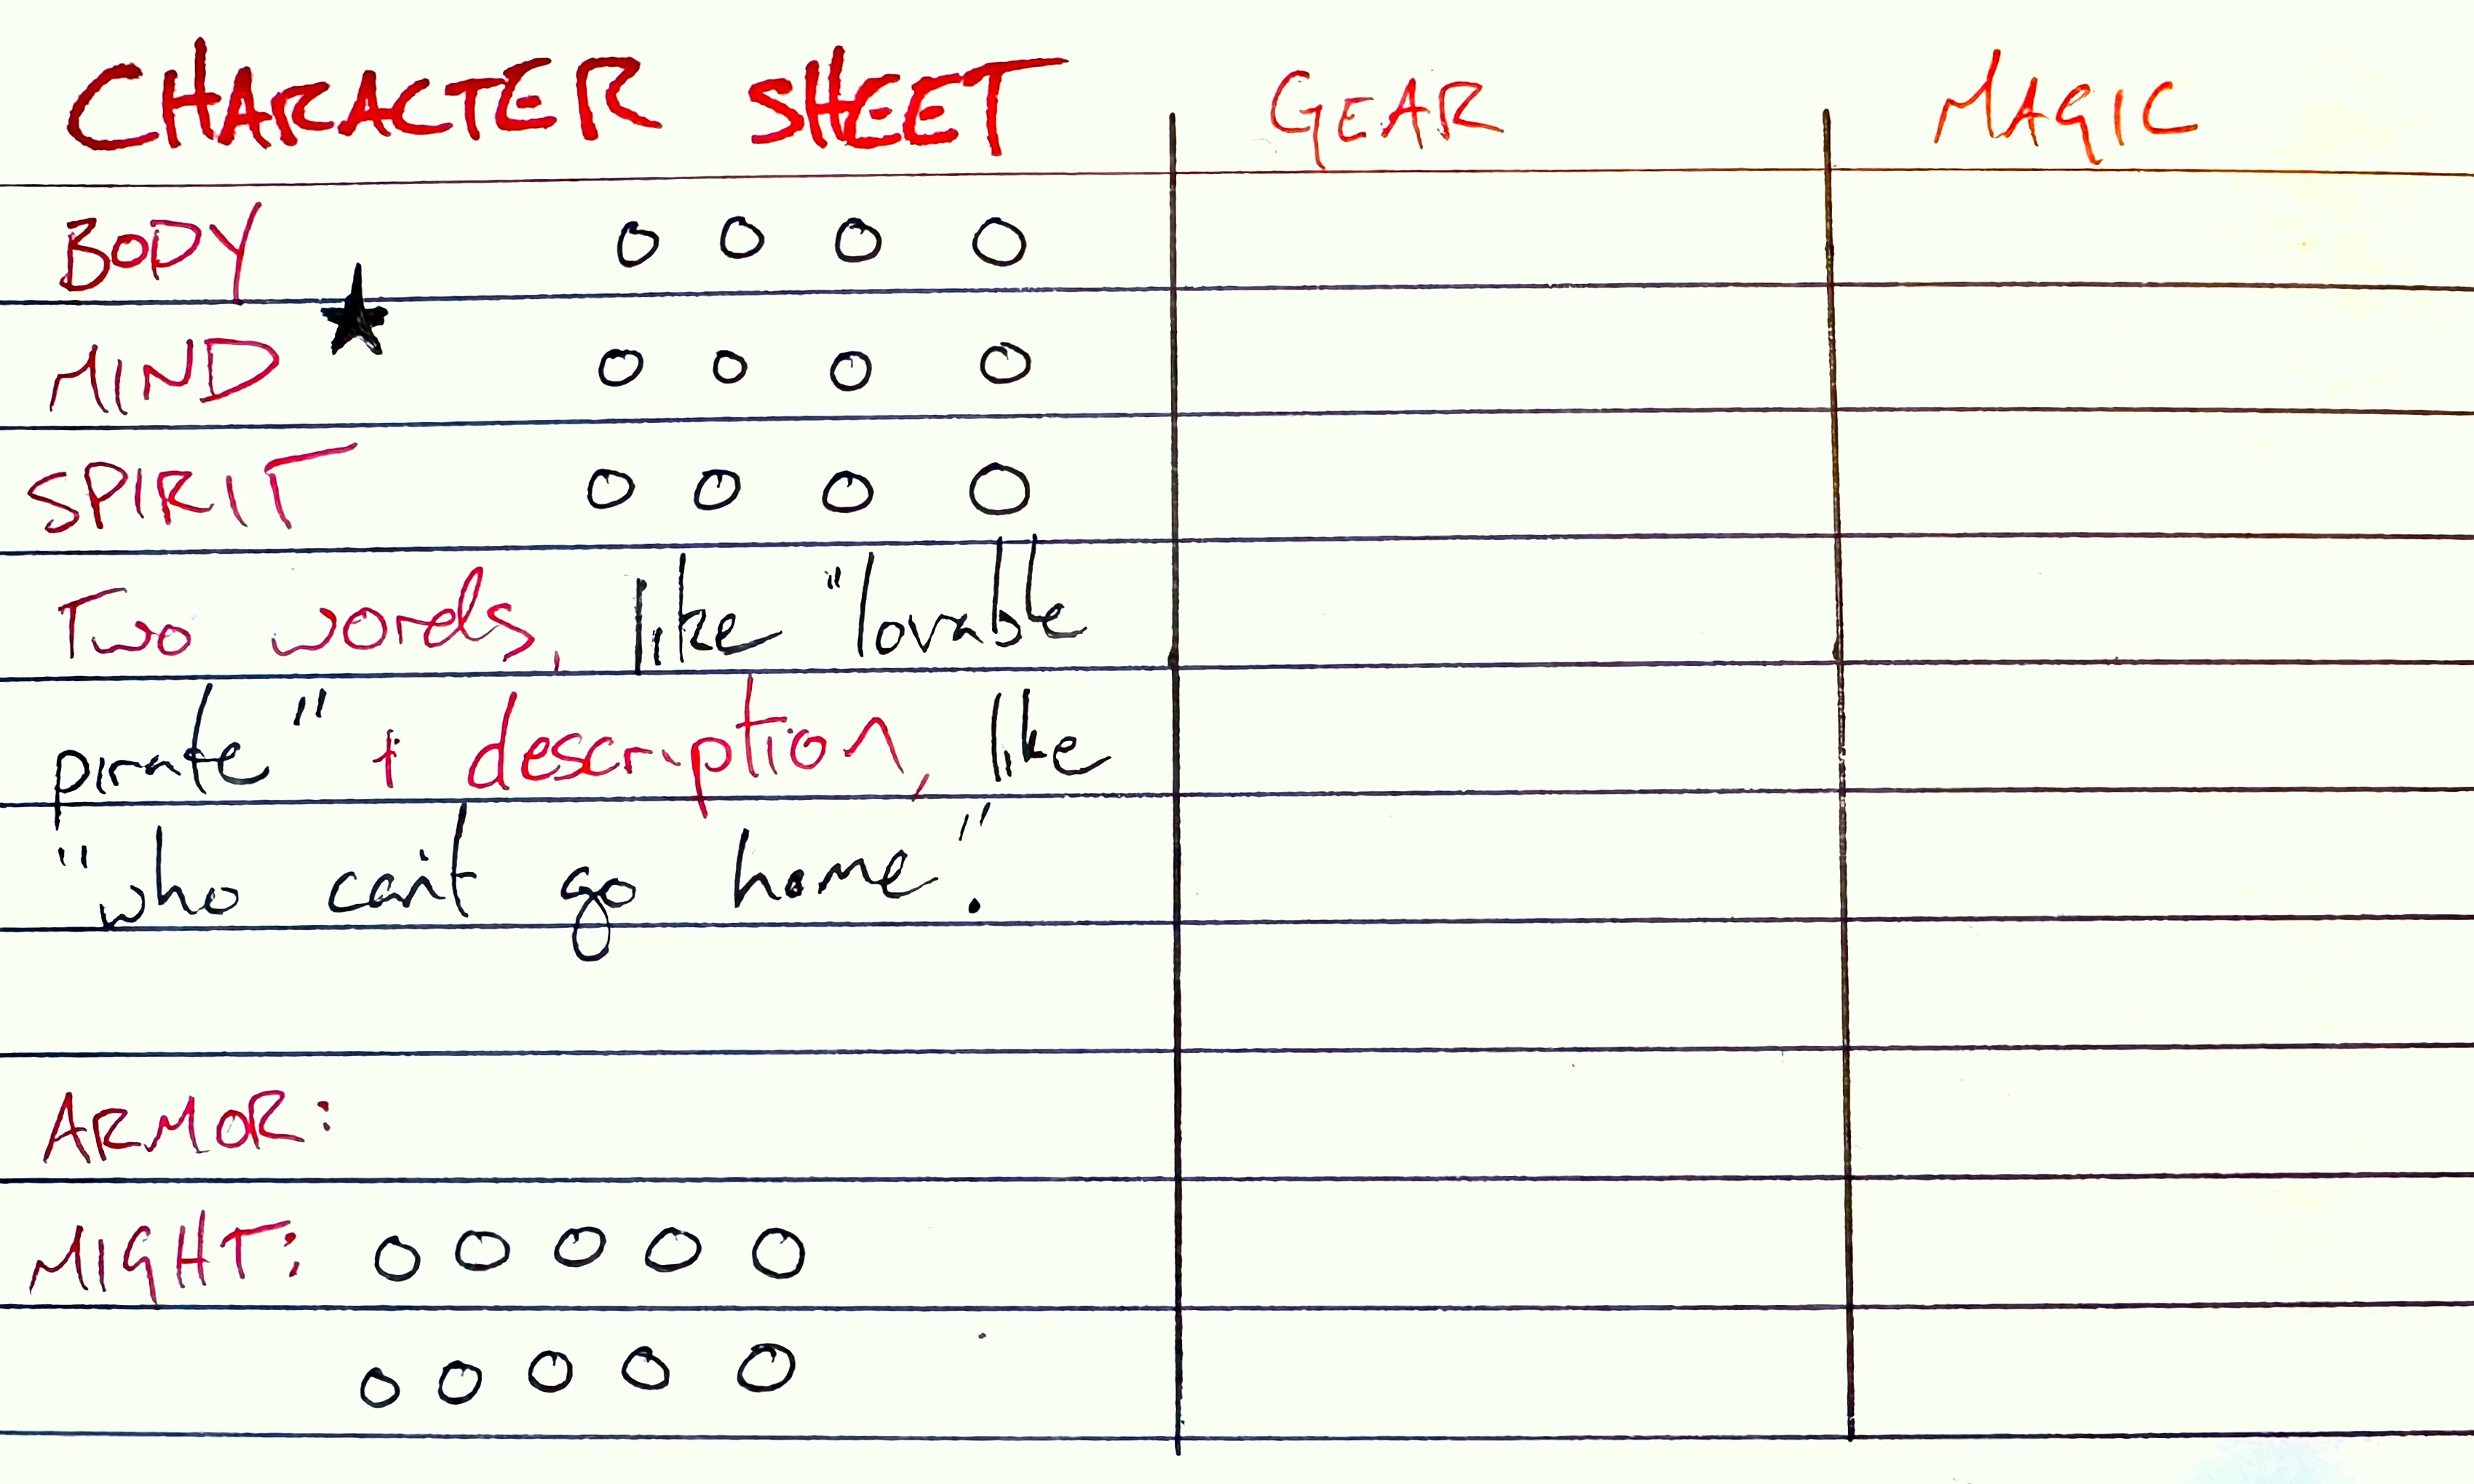 CHARACTER SHEET
GEAR
MAGIC
BODY
MIND
SPIRIT
Two words, like "lovable
pirate" + description, like
"who can't go home".
ARMOR:
MIGHT: